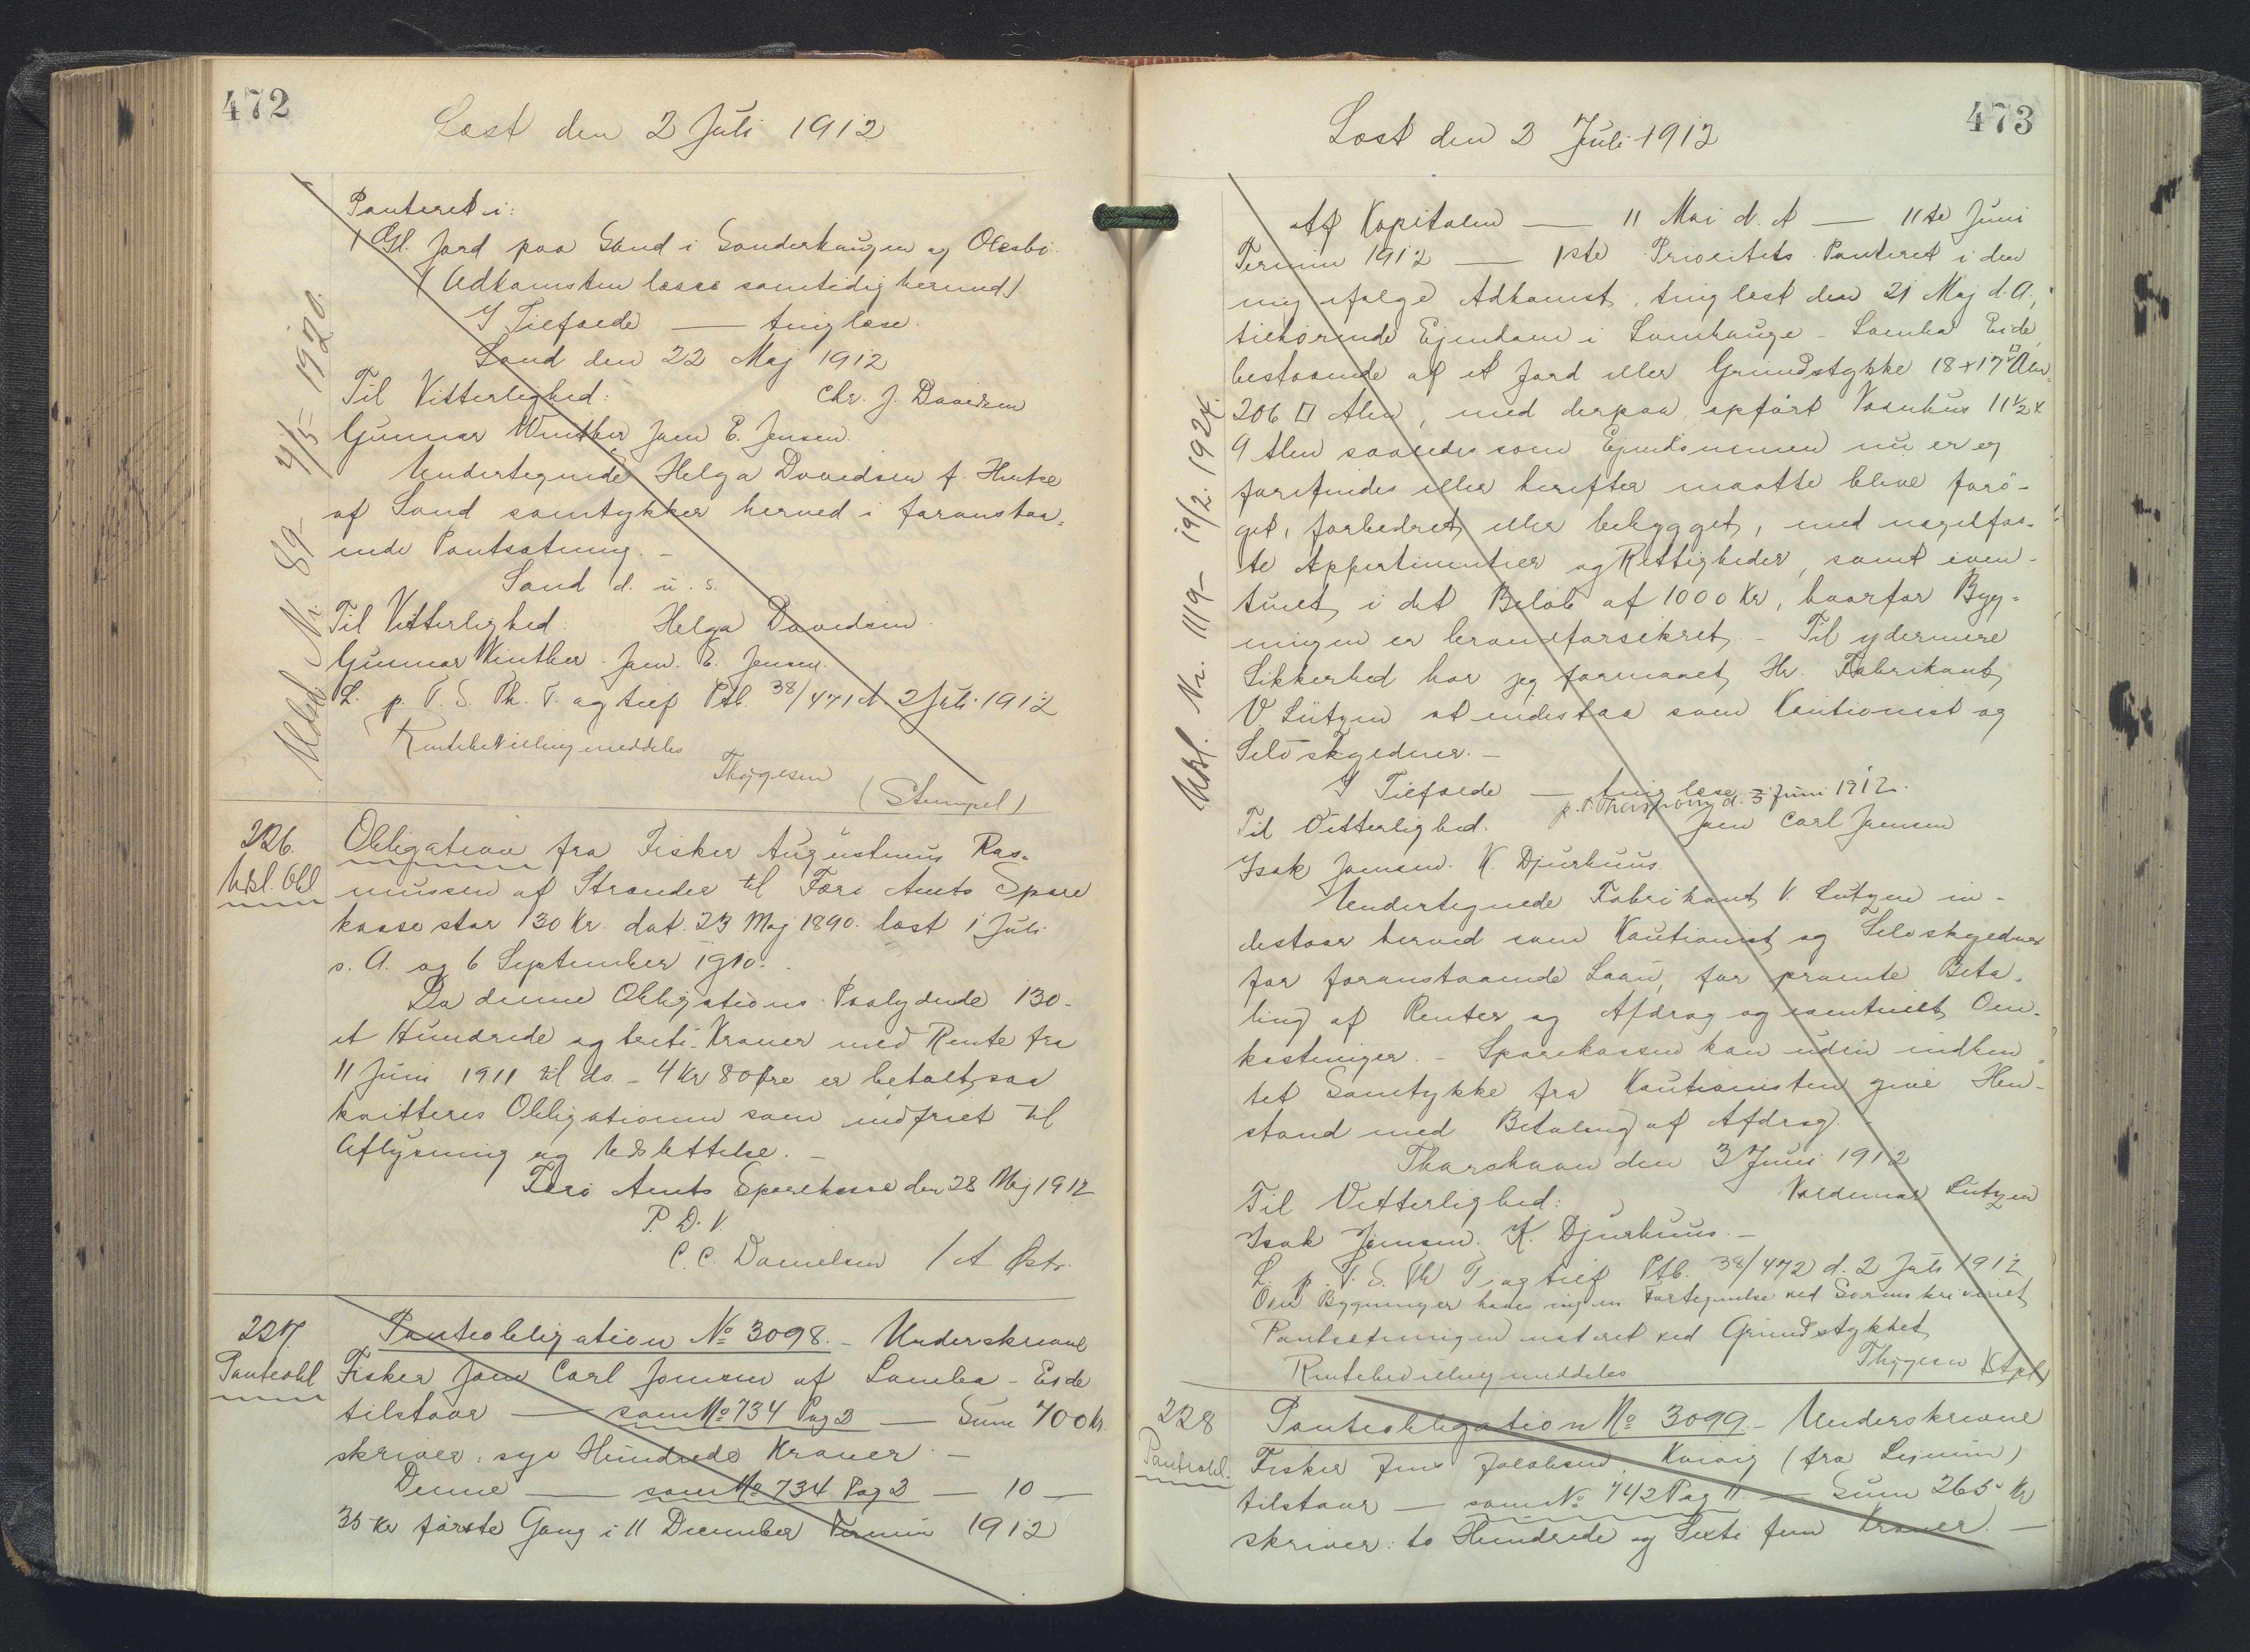 472
Læst den 2 Juli 1912
Panteret i:
1 Gl. Jord paa Sand i Sønderhaugen og Olesbö.
(Adkomsten læses samtidig hermed).
I Tilfælde — tinglæse.
Sand den 22 Maj 1912
Til Vitterlighed: Chr. J. Davidsen
Gunnar Winther Joen E. Jensen.
Undertegnede Helga Davidsen f. Hentze
af Sand samtykker herved i foranstaa-
ende Pantsætning. –
Sand d. u. s.
Til Vitterlighed. Helga Davidsen.
Gunnar Winther. Joen. E. Jensen.
L. p. T. S. Th. T. og tilf Ptb. 38/471 d. 2 Juli 1912
Rentebevilling meddeles
Thygesen
(Stempel)
Udsl Nr 89 – 4/5 = 1920.
226.
Udsl. Obl
Obligation fra Fisker Augustinus Ras-
mussen af Strænder til Færö Amts Spare
kasse stor 130 Kr. dat. 23 Maj 1890. læst 1 Juli
s. A. og 6 September 1910.
Da denne Obligations Paalydende 130-
et Hundrede og treti Kroner med Rente fra
11 Juni 1911 til ds. – 4 Kr 80 Øre er betalt, saa
kvitteres Obligationen som indfriet til
Aflysning og Udslettelse. –
Færö Amts Sparekasse den 28 Maj 1912
P. D. V.
C. C. Danielsen / A Østr.
227.
Panteobl
Panteobligation No 3098. – Underskrevne
Fisker Joen Carl Joensen af Lamba – Eide
tilstaar — som No 734 Pag 2 — Sum 700 Kr.
skriver: syv Hundrede Kroner. –
Denne — som No 734 Pag 2 — 10 —
35 Kr første Gang i 11 December Termin 1912
473
Læst den 2 Juli 1912
Af Kapitalen — 11 Maj d. A — 11te Juni
Termin 1912 — 1ste Prioritets Panteret i den
mig ifølge Adkomst, tinglæst den 21 Maj d. A.,
tilhörende Ejendom i Lamhauge – Lamba Eide,
bestaaende af et Jord eller Grundstykke 18 x 17 Alen
206 □ Alen, med derpaa opført Vaanhus 11½ x
9 Alen saaledes som Ejendommen nu er og
forefindes eller herefter maatte blive forö-
get, forbedret eller bebygget, med nagelfas-
te Appertinentier og Rettigheder, samt even-
tuelt i det Beløb af 1000 Kr, hvorfor Byg-
ningen er brandforsikret. – Til ydermere
Sikkerhed har jeg formaaet Hr. Fabrikant
V Lützen at indestaa som Kautionist og
Selvskyldner. –
I Tilfælde — tinglæse.
p. t. Thorshavn d. 3 Juni 1912.
Til Vitterlighed. Joen Carl Joensen
Isak Joensen. K. Djurhuus.
Undertegnede Fabrikant V. Lützen in-
destaar herved som Kautionist og Selvskyldner
for foranstaaende Laan, for promte Beta-
ling af Renter og Afdrag og eventuelt Om-
kostninger. – Sparekassen kan uden indhen-
tet Samtykke fra Kautionisten give Hen-
stand med Betaling af Afdrag.
Thorshavn den 3 Juni 1912
Til Vitterlighed: Valdemar Lützen
Isak Joensen. K. Djurhuus. –
L. p. T. S. Th T. og tilf Ptb. 38/472 d. 2 Juli 1912
Om Bygninger haves ingen Fortegnelse ved Sorenskriveriet
Pantsætningen noteret ved Grundstykket
Rentebevilling meddeles Thygesen
Udsl. Nr. 1119 – 19/2. 1924.
228
Panteobl.
Panteobligation No 3099. – Underskrevne
Fisker Jens Jacobsen, Kvivig (fra Leynum)
tilstaar — som No 742 Pag 11. — Sum 265 Kr
skriver: to Hundrede og Sexti fem Kroner. –